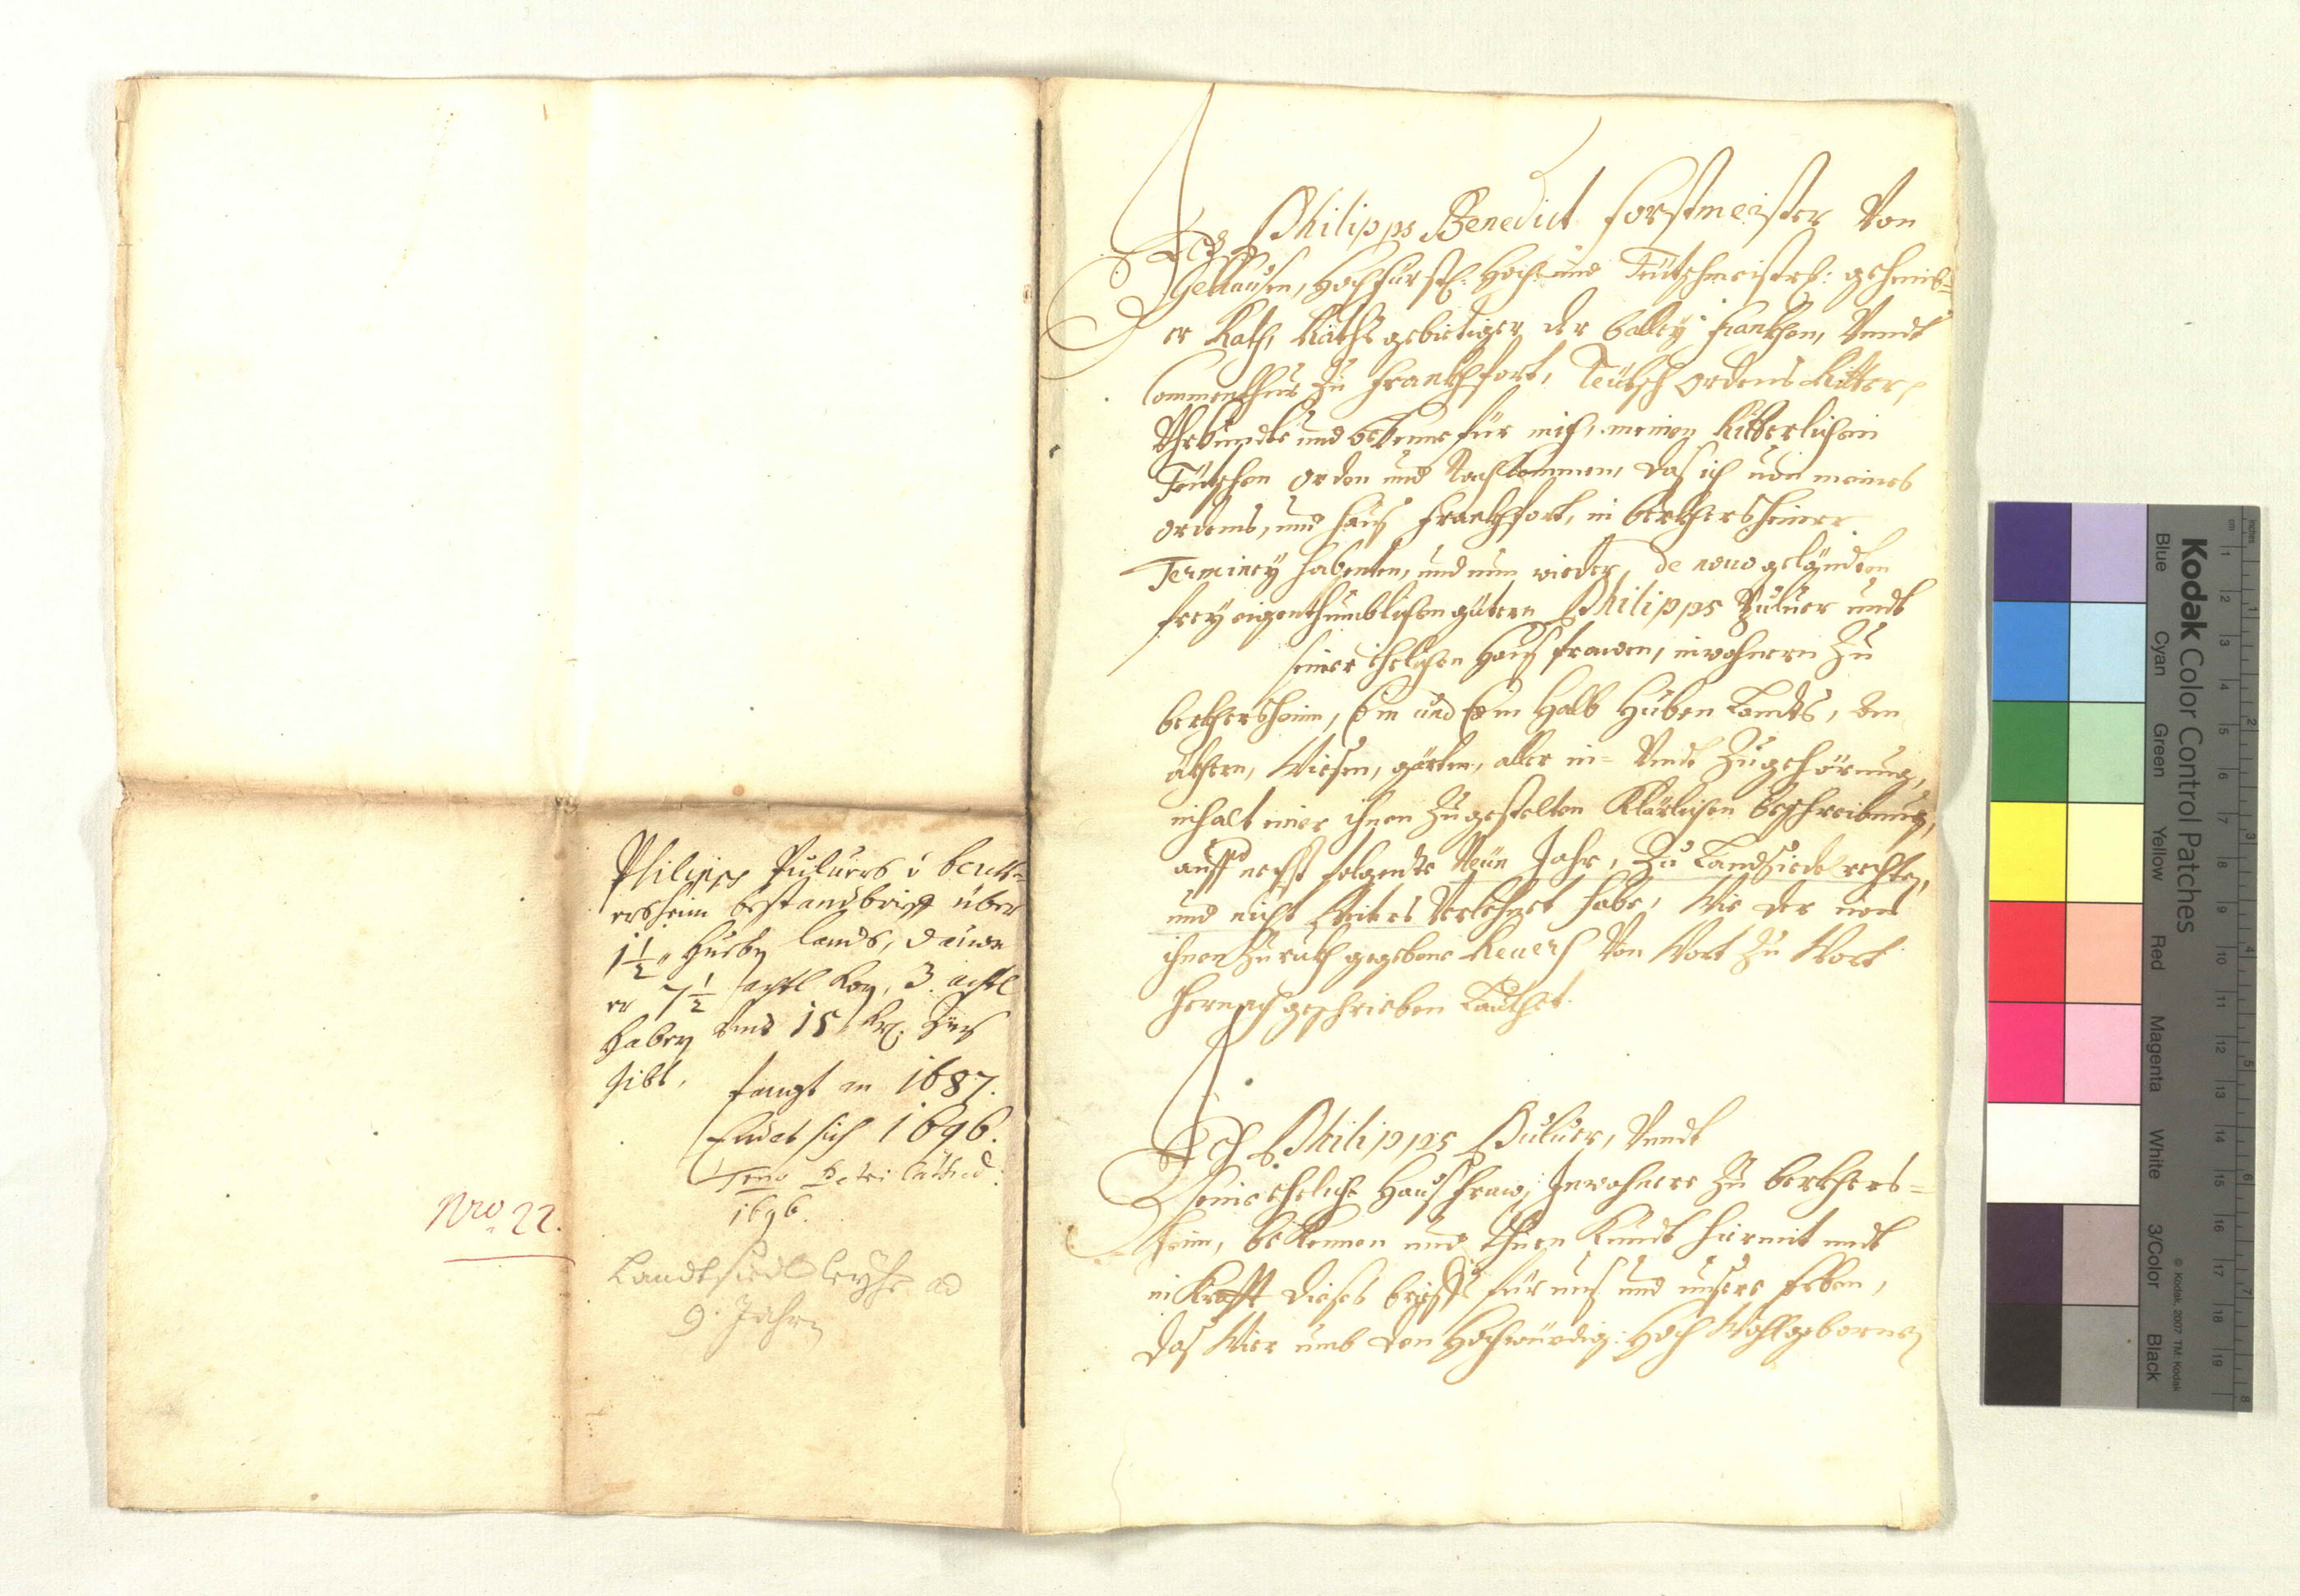 Philipps Puluers i berck=
ersheim bestandbrieff über
1 1/2 Hueben lands, dauon
er 7 1/2 achtl korn, 3. achtl
Habern und 15 kr. Zins
gibt,
fangt an 1687.
Endet sich 1696.
Petri Cathed:
1696.
Nro. 22.
Landtsiedl leyhe ad
9. Jahrn
Ich Philipps Benedict forstmeister Von
Gelhausen, Hochfürstl: Hoch- und Teütschmeisters: geheimb=
er Rath, Rathsgebietiger der balley francken, Vundt
Commenthur Zu franckhfort, Teütsch ordens Ritter,
Uhrkundte und bekenne für mich, meinen Ritterlichen
Teütschen orden und Nachkommen, das ich von meines
ordens, und haus franckhfort, in berkhersheimer
Terminey habenten, und nun wieder, de nouo geländten
frey eigenthumblichen gütern Philipps Puluer undt
seiner Ehelichen Haus frawen, inwohnern Zu
berkhersheim, Ein und Ein Halb Hüben Landts, von
äkhern, Wiesen, gärten, aller in= Vndt Zugehörung,
inhalt einer ihnen Zugestelten Klärlichen beschreibung,
auff nechst folgendte Neün Jahr, Zu Landsiedel rechten,
und nicht Weiters Verlehnet habe, Wie der von
ihnen Zurukh gegebene Reuers Von Wort Zu Wort
hernach geschrieben Lauthet.
Ich Philipps Puluer, Vundt
seine eheliche Haus fraw, Inwohnere Zu berkhers=
heim, bekennen und thuen Kundt hiermit undt
in Krafft dieses brieffs für uns und unsere Erben,
das Wier umb den Hochwürdig: Hoch Wohlgebornen